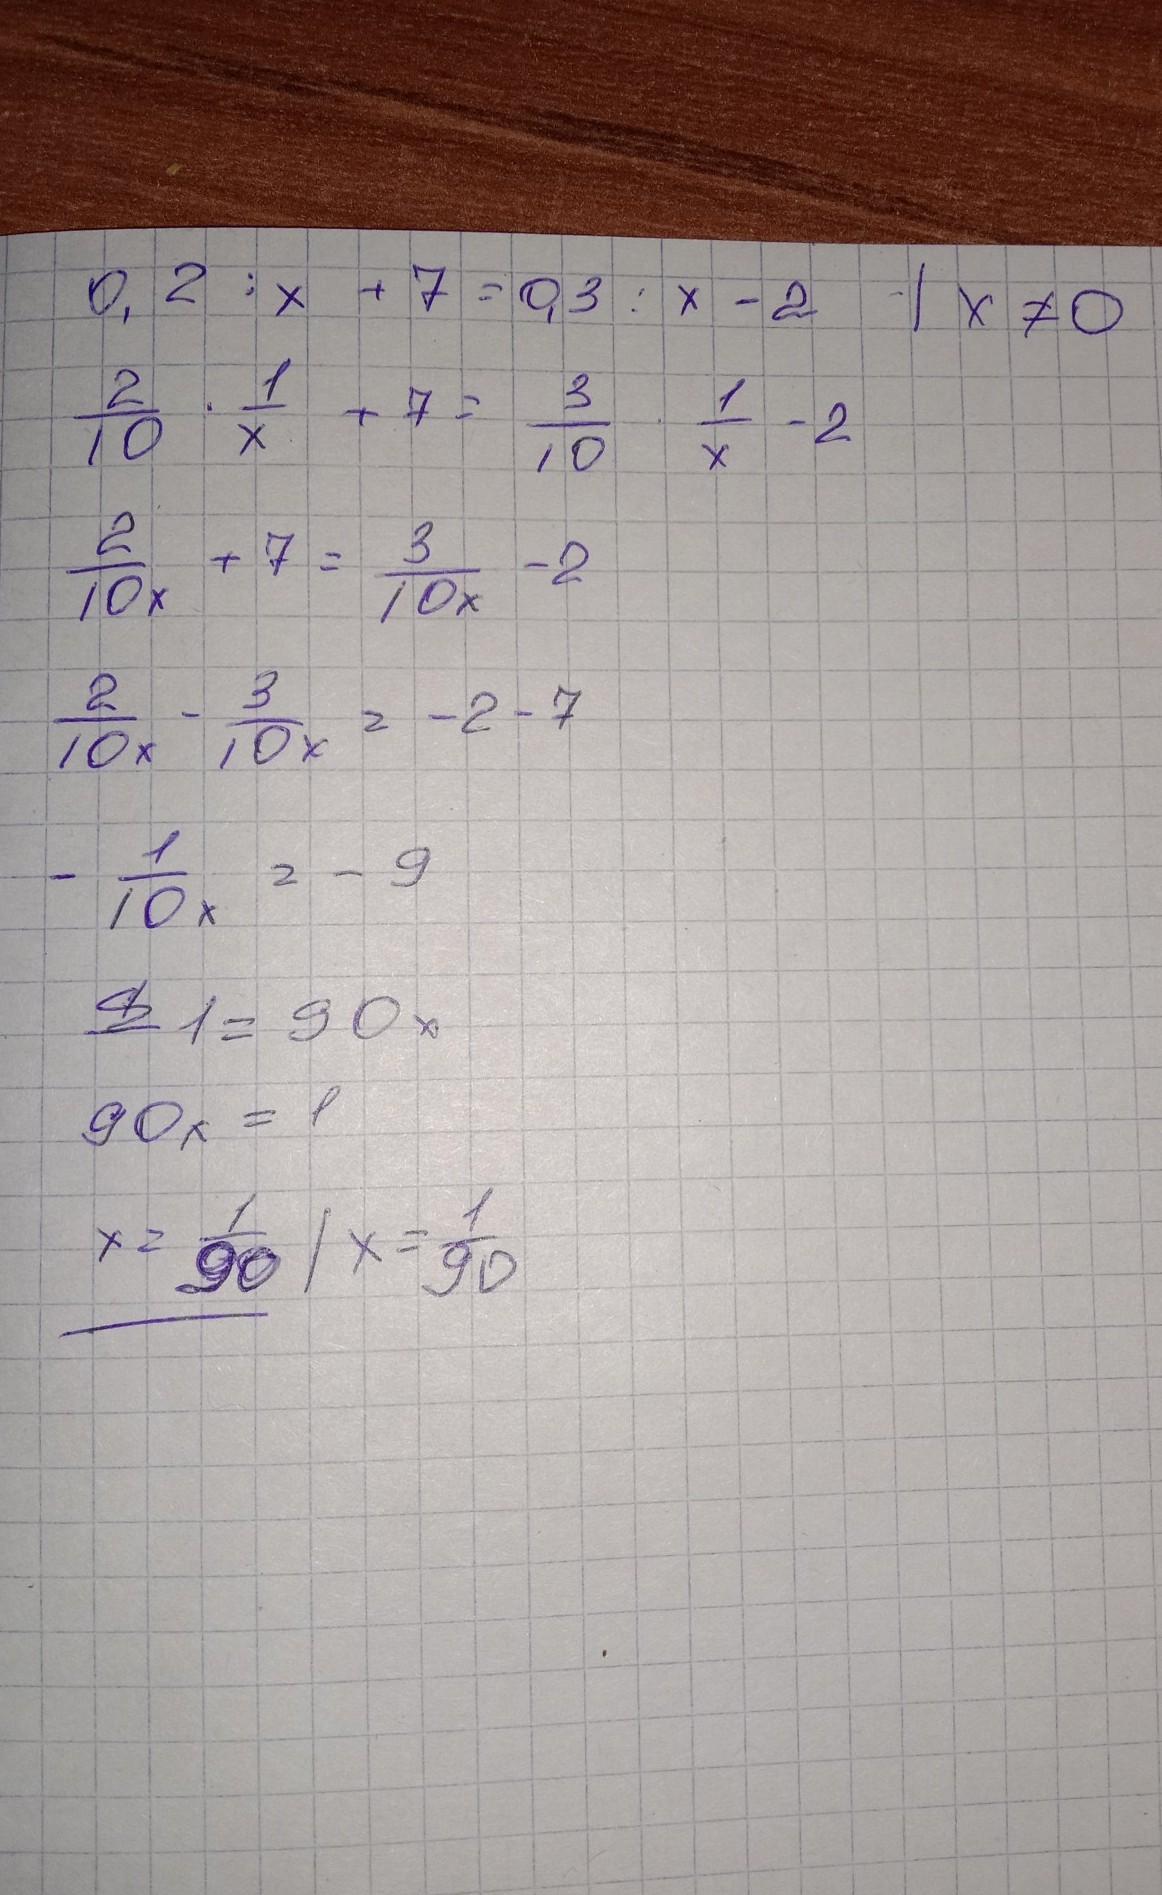 0,2 : x + 7 = 0,3 : x - 2 | x ≠ 0
2/10 · 1/x + 7 = 3/10 · 1/x - 2
2/10x + 7 = 3/10x - 2
2/10x - 3/10x = -2 - 7
- 1/10x = - 9
1 = 90x
90x = 1
x = 1/90 / x = 1/90